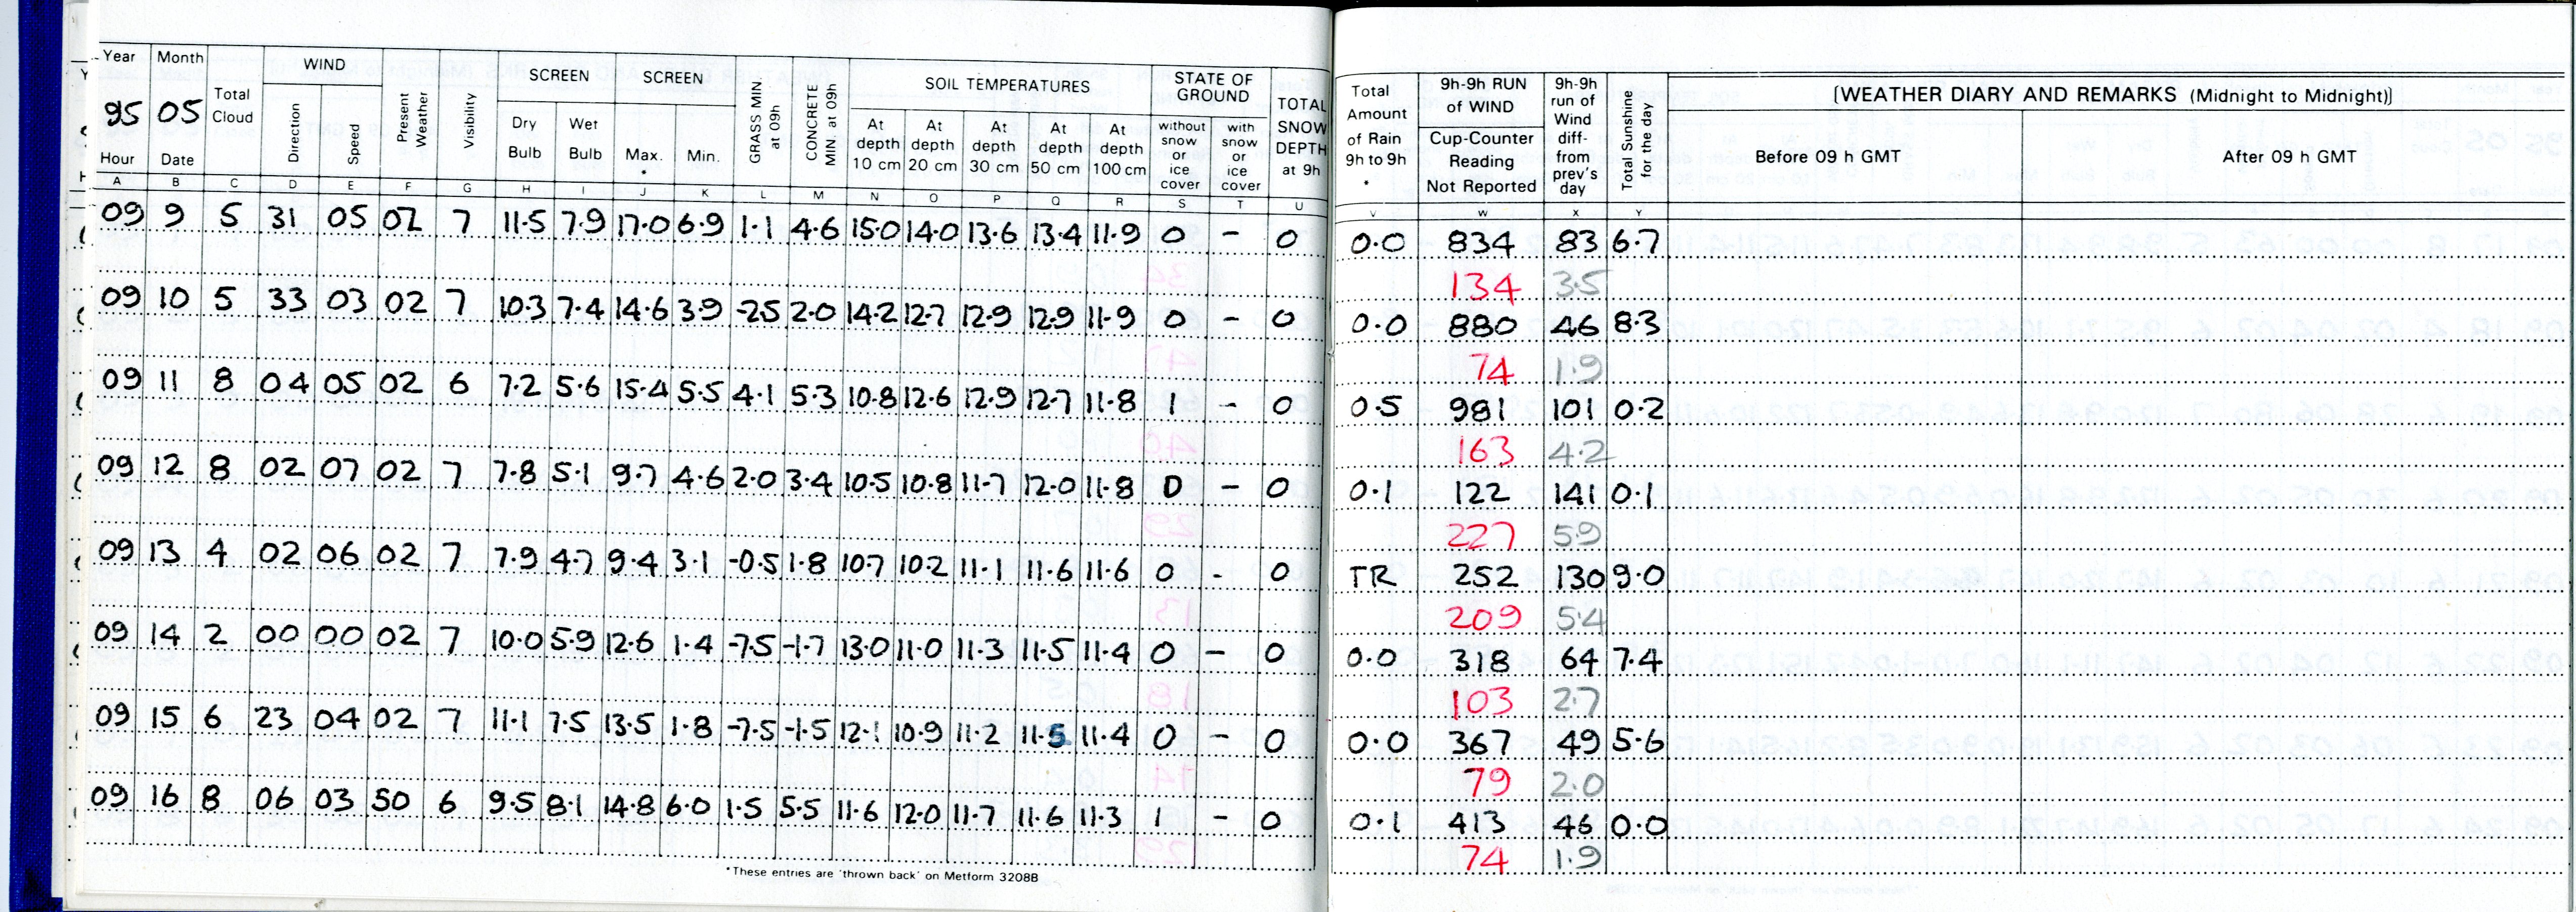 Year Month
95 05
Hour Date
Total Cloud
WIND
Direction Speed
Present Weather
Visibility
SCREEN
Dry Bulb Wet Bulb
SCREEN
Max. * Min.
GRASS MIN at 09h
CONCRETE MIN at 09h
SOIL TEMPERATURES
At depth 10 cm At depth 20 cm At depth 30 cm At depth 50 cm At depth 100 cm
STATE OF GROUND
without snow or ice cover with snow or ice cover
TOTAL SNOW DEPTH at 9h
Total Amount of Rain 9h to 9h *
9h-9h RUN of WIND
Cup-Counter Reading Not Reported
9h-9h run of Wind diff- from prev's day
Total Sunshine for the day
(WEATHER DIARY AND REMARKS (Midnight to Midnight))
Before 09 h GMT After 09 h GMT
A B C D E F G H I J K L M N O P Q R S T U V W X Y
09 9 5 31 05 02 7 11.5 7.9 17.0 6.9 1.1 4.6 15.0 14.0 13.6 13.4 11.9 0 - 0 0.0 834 83 6.7
134 3.5
09 10 5 33 03 02 7 10.3 7.4 14.6 3.9 -2.5 2.0 14.2 12.7 12.9 12.9 11.9 0 - 0 0.0 880 46 8.3
74 1.9
09 11 8 04 05 02 6 7.2 5.6 15.4 5.5 4.1 5.3 10.8 12.6 12.9 12.7 11.8 1 - 0 0.5 981 101 0.2
163 4.2
09 12 8 02 07 02 7 7.8 5.1 9.7 4.6 2.0 3.4 10.5 10.8 11.7 12.0 11.8 0 - 0 0.1 122 141 0.1
227 5.9
09 13 4 02 06 02 7 7.9 4.7 9.4 3.1 -0.5 1.8 10.7 10.2 11.1 11.6 11.6 0 - 0 TR 252 130 9.0
209 5.4
09 14 2 00 00 02 7 10.0 5.9 12.6 1.4 -7.5 -1.7 13.0 11.0 11.3 11.5 11.4 0 - 0 0.0 318 64 7.4
103 2.7
09 15 6 23 04 02 7 11.1 7.5 13.5 1.8 -7.5 -1.5 12.1 10.9 11.2 11.5 11.4 0 - 0 0.0 367 49 5.6
79 2.0
09 16 8 06 03 50 6 9.5 8.1 14.8 6.0 1.5 5.5 11.6 12.0 11.7 11.6 11.3 1 - 0 0.1 413 46 0.0
74 1.9
*These entries are 'thrown back' on Metform 3208B